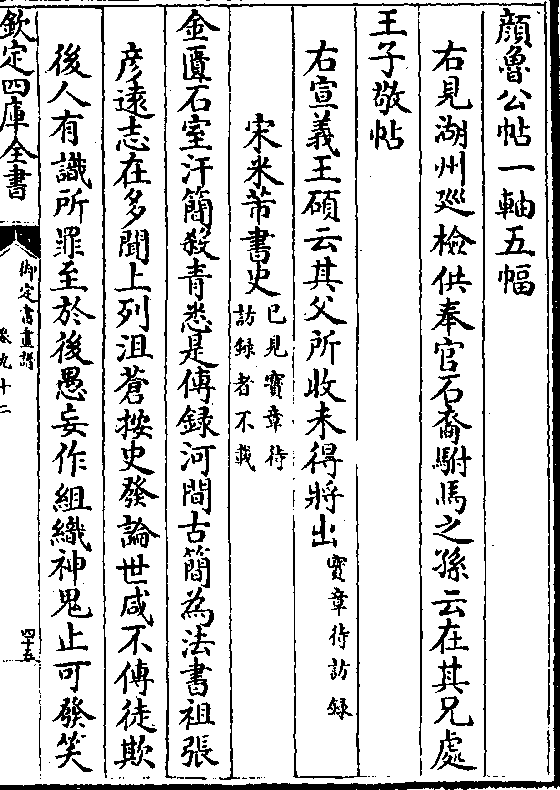 顔魯公帖一軸五幅
右見湖州廵檢供奉官石裔駙馬之孫云在其兄處
王子敬帖
右宣義王碩云其父所收未得將出寳章待訪録
宋米芾書史已見寳章待訪録者不載
金匱石室汗簡殺青悉是傳録河間古簡為法書祖張
彦遠志在多聞上列沮蒼按史發論世咸不傳徒欺
後人有識所罪至於後愚妄作組織神鬼止可發笑
欽定四庫全書
御定書畫譜
卷九十二
四十五